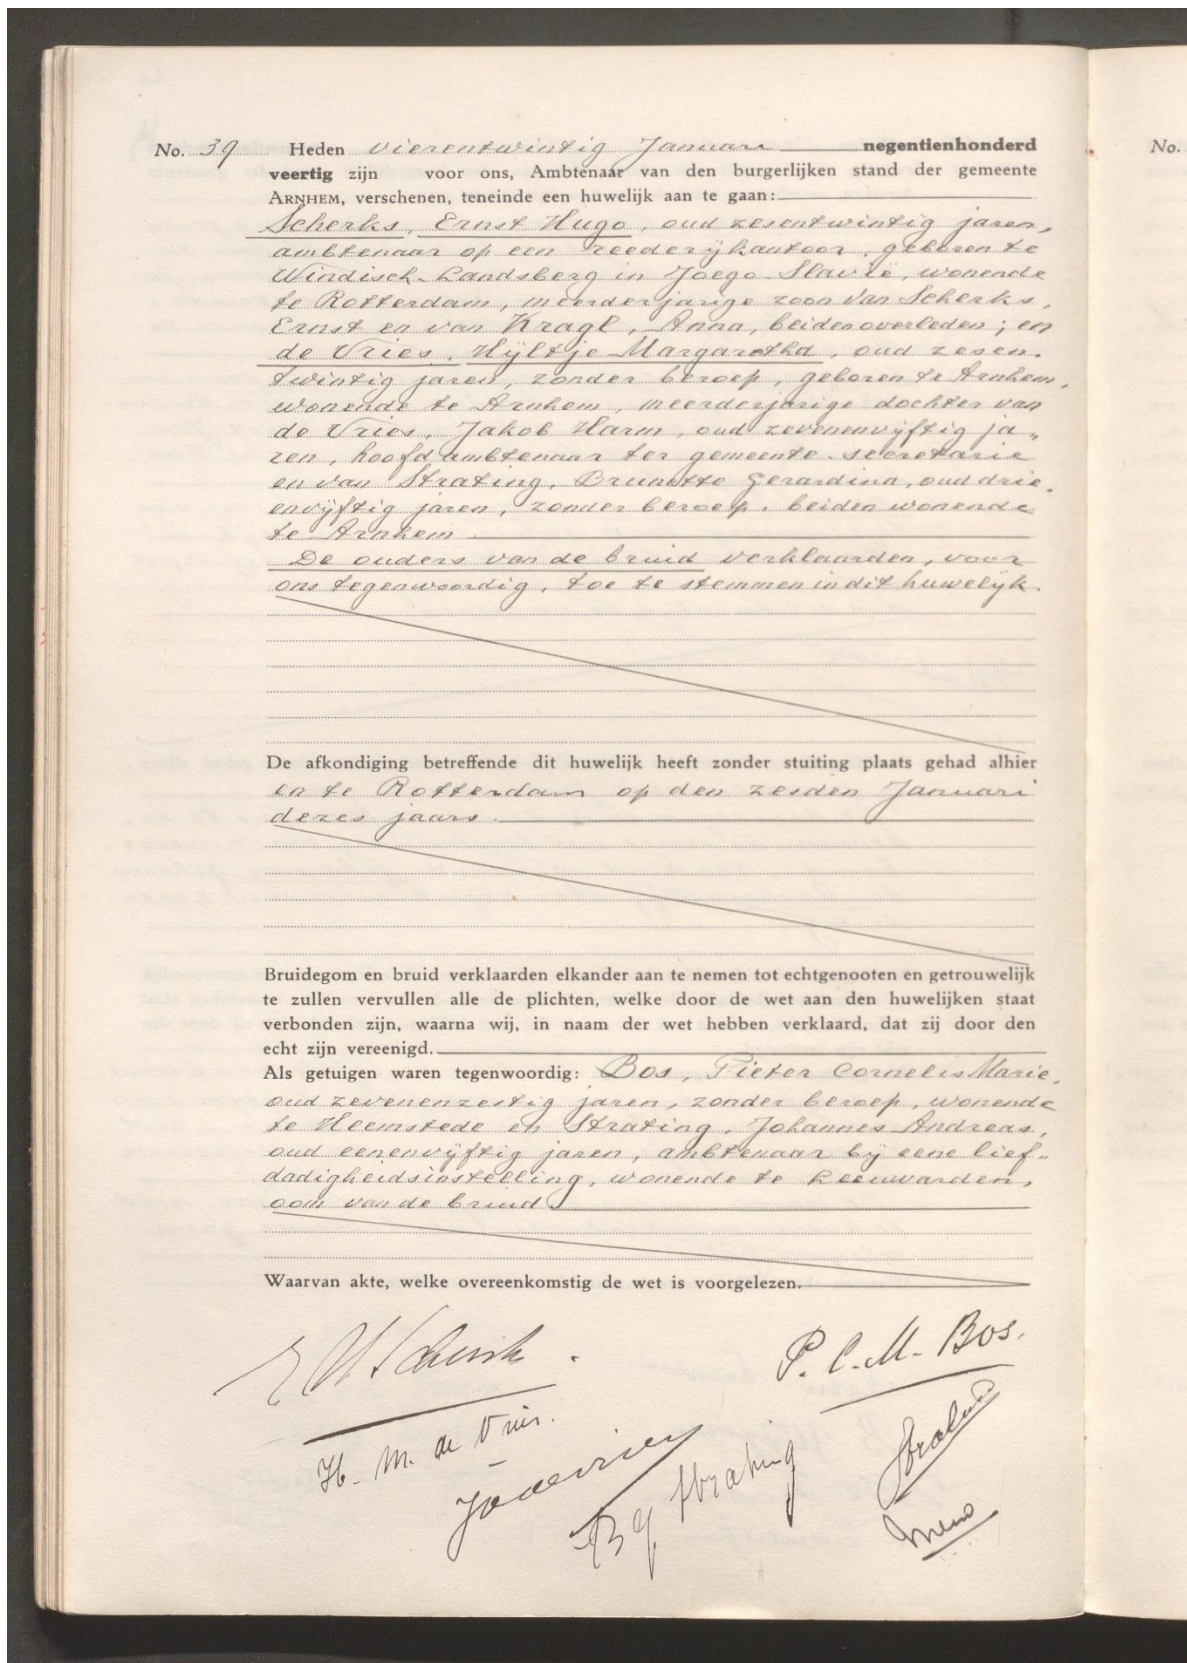 No. 39 Heden vierentwintig Januari negentienhonderd
veertig zijn voor ons, Ambtenaar van den burgerlijken stand der gemeente
ARNHEM, verschenen, teneinde een huwelijk aan te gaan:
Scherks, Ernst Hugo, oud zesentwintig jaren,
ambtenaar op een reederijkantoor, geboren te
Windisch-Landsberg in Joego-Slavië, wonende
te Rotterdam, meerderjarige zoon van Scherks,
Ernst en van Kragl, Anna, beiden overleden; en
de Vries, Hijltje Margaretha, oud zesen-
twintig jaren, zonder beroep, geboren te Arnhem,
wonende te Arnhem, meerderjarige dochter van
de Vries, Jakob Harm, oud zevenenvijftig ja-
ren, hoofdambtenaar ter gemeente-secretarie
en van Strating, Brunette Gerardina, oud drie-
envijftig jaren, zonder beroep, beiden wonende
te Arnhem
De ouders van de bruid verklaarden, voor
ons tegenwoordig, toe te stemmen in dit huwelijk.
De afkondiging betreffende dit huwelijk heeft zonder stuiting plaats gehad alhier
en te Rotterdam op den zesden Januari
dezes jaars.
Bruidegom en bruid verklaarden elkander aan te nemen tot echtgenooten en getrouwelijk
te zullen vervullen alle de plichten, welke door de wet aan den huwelijken staat
verbonden zijn, waarna wij, in naam der wet hebben verklaard, dat zij door den
echt zijn vereenigd.
Als getuigen waren tegenwoordig: Bos, Pieter Cornelis Marie,
oud zevenenzestig jaren, zonder beroep, wonende
te Heemstede en Strating, Johannes Andreas,
oud eenenvijftig jaren, ambtenaar bij eene lief-
dadigheidsinstelling, wonende te Leeuwarden,
oom van de bruid
Waarvan akte, welke overeenkomstig de wet is voorgelezen.
P. C. M. Bos.
H. M. de Vries.
JHdeVries
B G Strating
No.